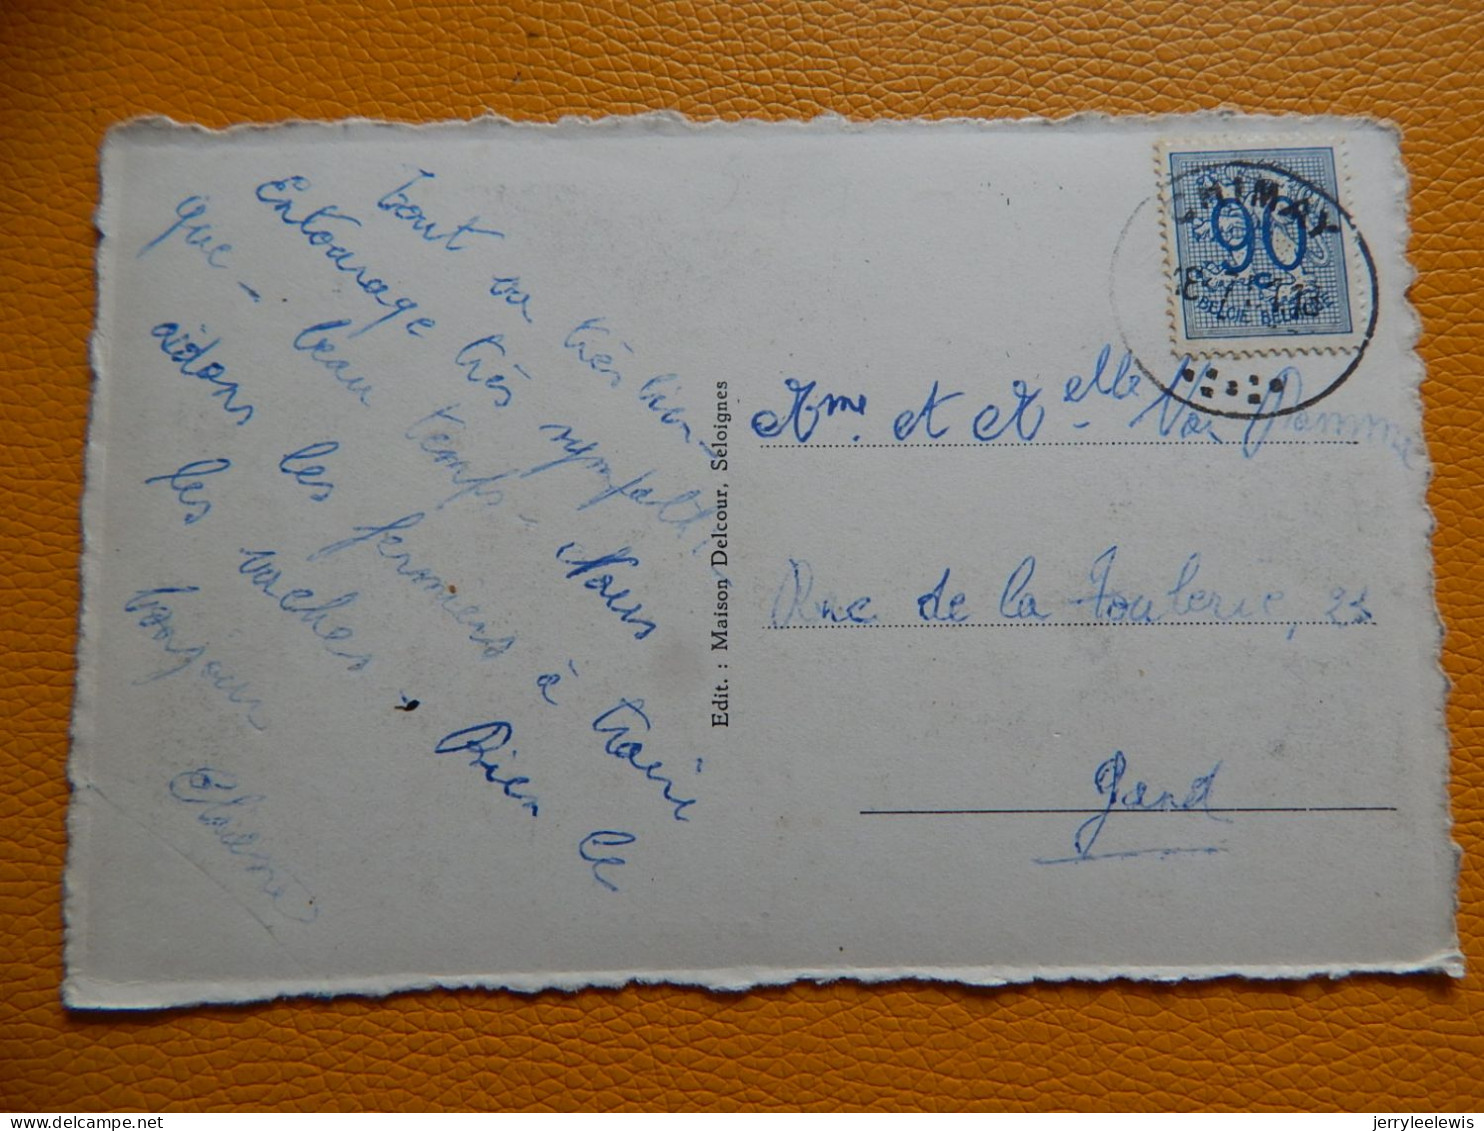 Tout va très bien,
Entourage très sympathi
que - beau temps. Nous
aidons les fermiers à traire
les vaches. Bien le
bonjour
Edit. : Maison Delcour, Seloignes
CHIMAY
90
BELGIE BELGIQUE
Mme et Melle Van Damme
Rue de la
Gand
jerryleelewis